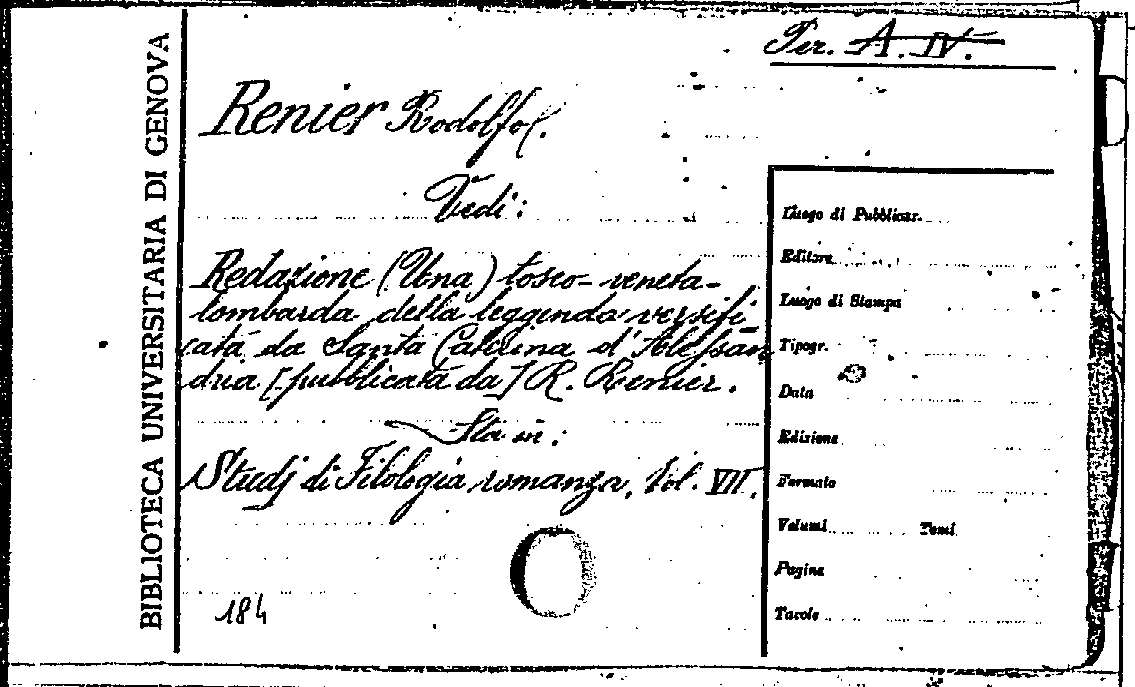 Per. A. IV.
BIBLIOTECA UNIVERSITARIA DI GENOVA
Renier Rodolfo.
Vedi:
Redazione (Una) tosco-veneta-
lombarda della leggenda versifi
cata da Santa Caterina d'Alessan
dria [pubblicata da] R. Renier.
Sta in:
Studj di Filologia romanza, Vol. VII.
184
Luogo di Pubblicaz.
Editore
Luogo di Stampa
Tipogr.
Data
Edizione
Formato
Volumi Tomi
Pagine
Tavole